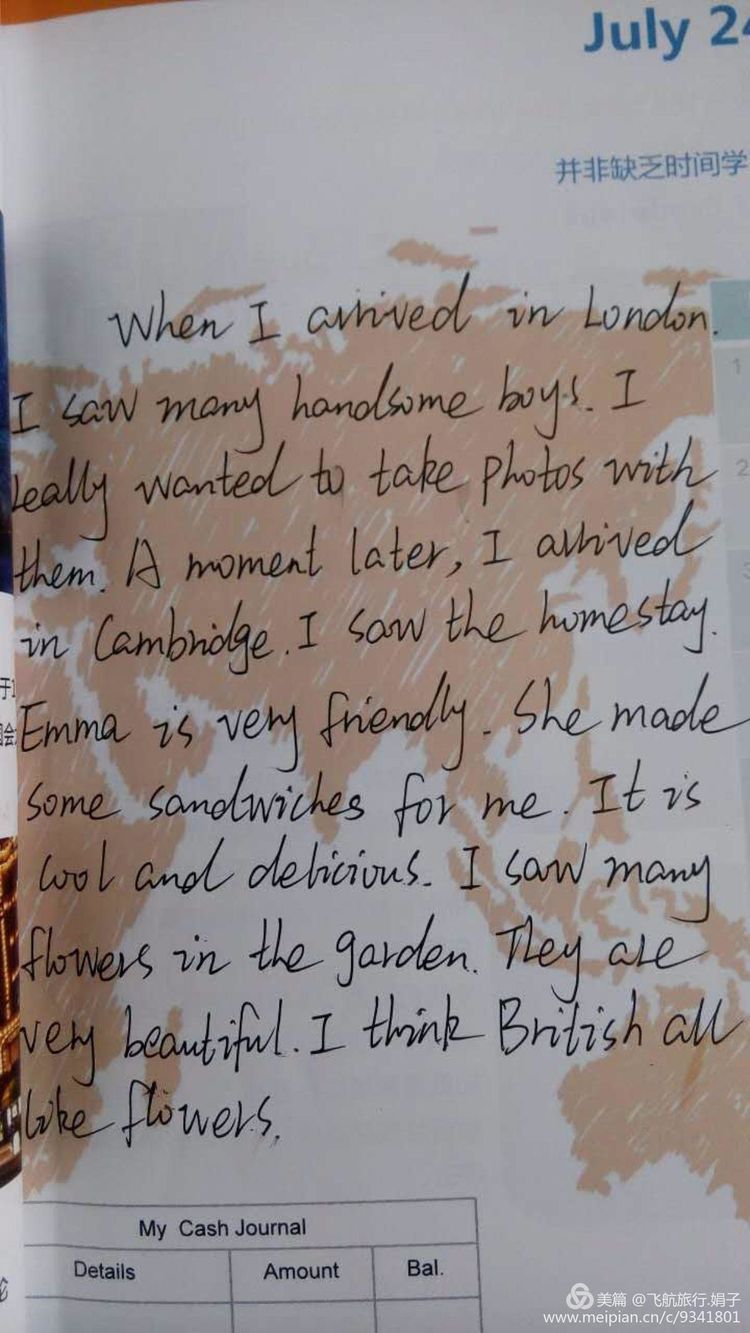 July 24
并非缺乏时间学
When I arrived in London.
I saw many handsome boys. I
really wanted to take photos with
them. A moment later, I arrived
in Cambridge. I saw the homestay.
Emma is very friendly. She made
some sandwiches for me. It is
cool and delicious. I saw many
flowers in the garden. They are
very beautiful. I think British all
like flowers.
1
2
3
My Cash Journal
Details Amount Bal.
美篇 @飞航旅行.娟子
www.meipian.cn/c/9341801